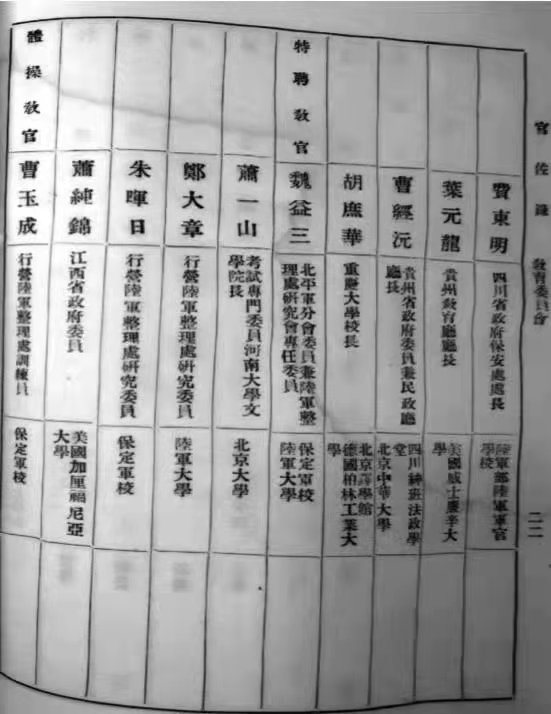 官佐錄 教育委員會 二二
費東明
四川省政府保安處處長
陸軍部陸軍軍官
學校
葉元龍
貴州教育廳廳長
美國威士康辛大
學
曹經沅
貴州省政府委員兼民政廳
廳長
四川紳班法政學
堂
北京中華大學
胡庶華
重慶大學校長
北京譯學館
德國柏林工業大
學
特聘教官
魏益三
北平軍分會委員兼陸軍整
理處研究會專任委員
保定軍校
陸軍大學
蕭一山
考試專門委員河南大學文
學院長
北京大學
鄭大章
行營陸軍整理處研究委員
陸軍大學
朱暉日
行營陸軍整理處研究委員
保定軍校
蕭純錦
江西省政府委員
美國加厘福尼亞
大學
體操教官
曹玉成
行營陸軍整理處訓練員
保定軍校